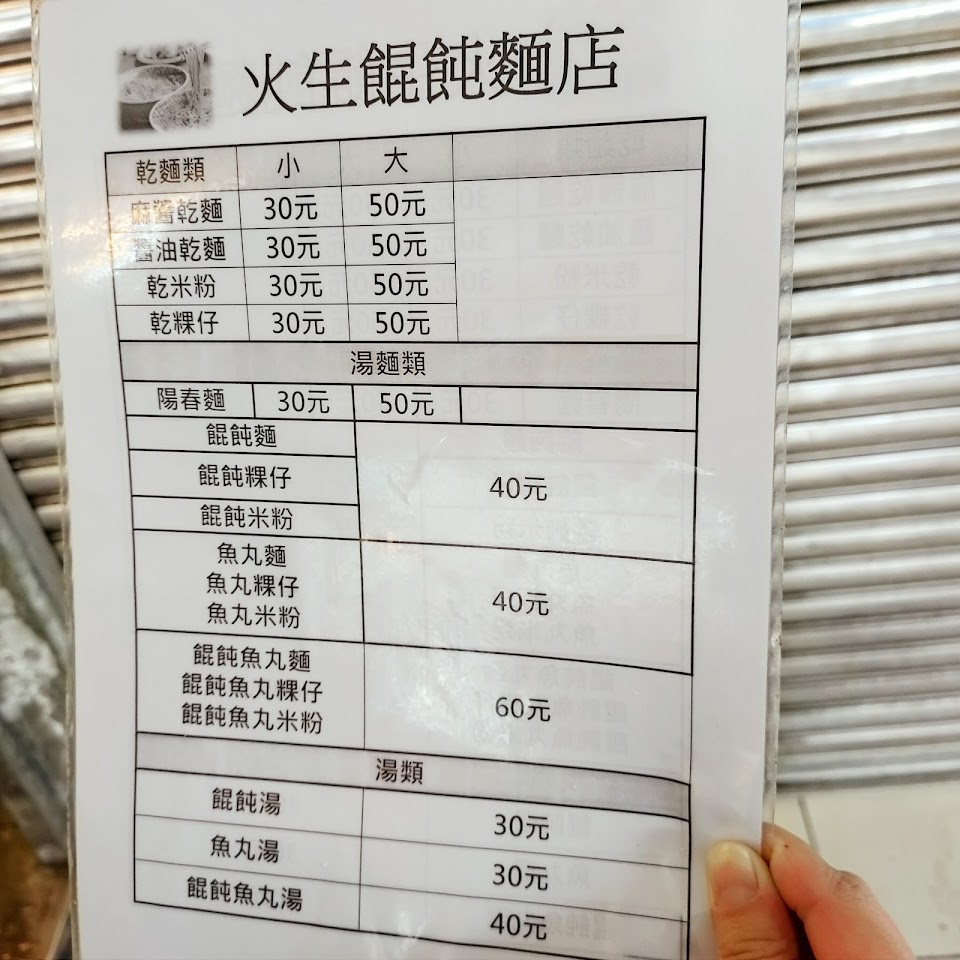 火生餛飩麵店
乾麵類 小 大
麻醬乾麵 30元 50元
醬油乾麵 30元 50元
乾米粉 30元 50元
乾粿仔 30元 50元
湯麵類
陽春麵 30元 50元
餛飩麵
餛飩粿仔 40元
餛飩米粉
魚丸麵
魚丸粿仔 40元
魚丸米粉
餛飩魚丸麵
餛飩魚丸粿仔 60元
餛飩魚丸米粉
湯類
餛飩湯 30元
魚丸湯 30元
餛飩魚丸湯 40元